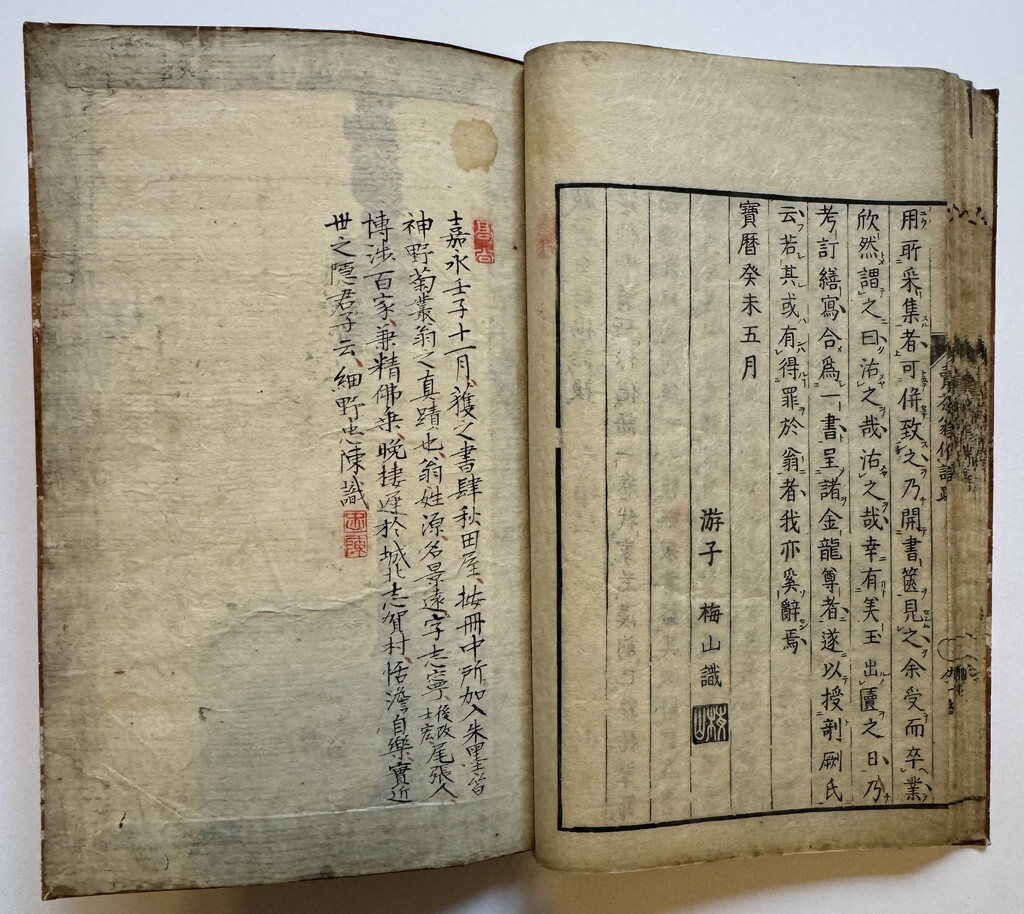 用所采集者可併致之乃開書篋見之余受而卒業
欣然謂之曰沽之哉沽之哉幸有美玉出匵之日乃
考訂繕寫合爲一書呈諸金龍尊者遂以授剞劂氏
云若其或有得罪於翁者我亦奚辭焉
寶曆癸未五月
游子 梅山識
梅山
嘉永壬子十一月獲之書肆秋田屋按冊中所加入朱墨筆
神野菊叢翁之真蹟也翁姓源名景遠字志寧後改士宏尾張人
博渉百家兼精佛乗晩棲遲於城北志賀村恬澹自樂實近
世之隱君子云細野忠陳識
忠陳